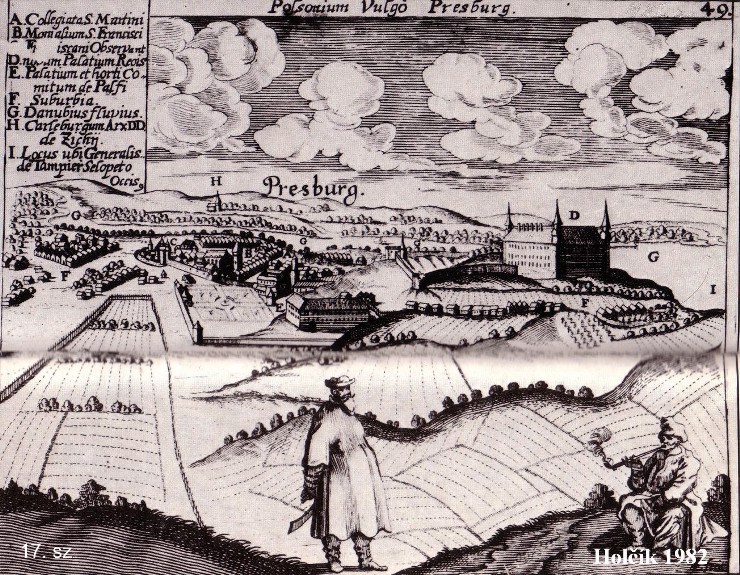 Possonium Vulgo Presburg.
49.
A. Collegiata S. Martini
B. Monialium S. Francisci
iscani Observant
D. Palatium Regis
E. Palatium et horti Co-
mitum de Palfi
F. Suburbia.
G. Danubius fluvius.
H. Carleburgum Arx DD.
de Zichy.
I. Locus ubi Generalis
de Tampier Selopeto
Occis9
Presburg.
H
G
C
G
D
G
I
F
F
E
17. sz.
Holčík 1982